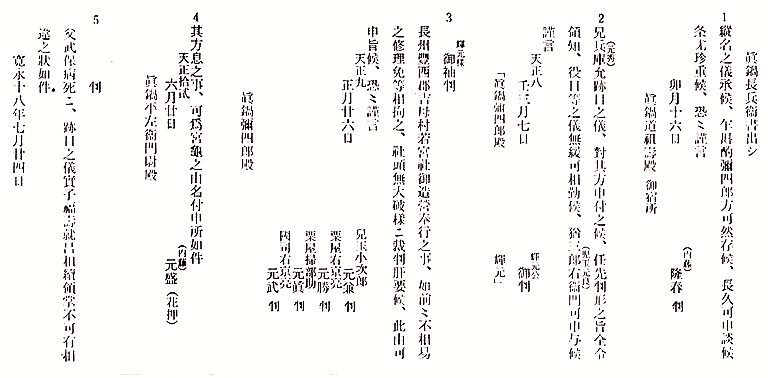 眞鍋長兵衞書出シ
1
縱名之儀承候、乍斟酌彌四郎方可然存候、長久可申談候
条尤珍重候、恐ミ謹言
卯月十六日
(内藤)
隆春 判
眞鍋道祖壽殿 御宿所
2
(元秀)
兄兵庫允跡目之儀、對其方申付之候、任先判形之旨全令
領知、役目等之儀無緩可相勤候、猶三郎右衞門可申与候
(兒玉元良)
謹言
天正八
壬三月七日
輝元公
御判
「眞鍋彌四郎殿
輝元」
3
輝元様
御袖判
長州豐西郡吉母村若宮社御造營奉行之事、如前ミ不相易
之修理免等相拘之、社頭無大破樣ニ裁判肝要候、此由可
申旨候、恐ミ謹言
天正九
正月廿六日
兒玉小次郎
元兼 判
粟屋右京亮
元勝 判
粟屋掃部助
元眞 判
國司右京亮
元武 判
眞鍋彌四郎殿
4
其方息之事、可爲宮龜之由名付申所如件
天正拾貳
六月廿日
(内藤)
元盛(花押)
眞鍋平左衞門尉殿
5
判
父武保病死ニ、跡目之儀實子福壽就吕相續領掌不可有相
違之狀如件
寬永十八年七月廿四日